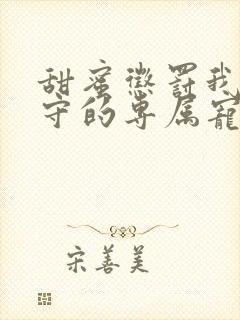 甜蜜懲罰我
守的専属寵
宋善美